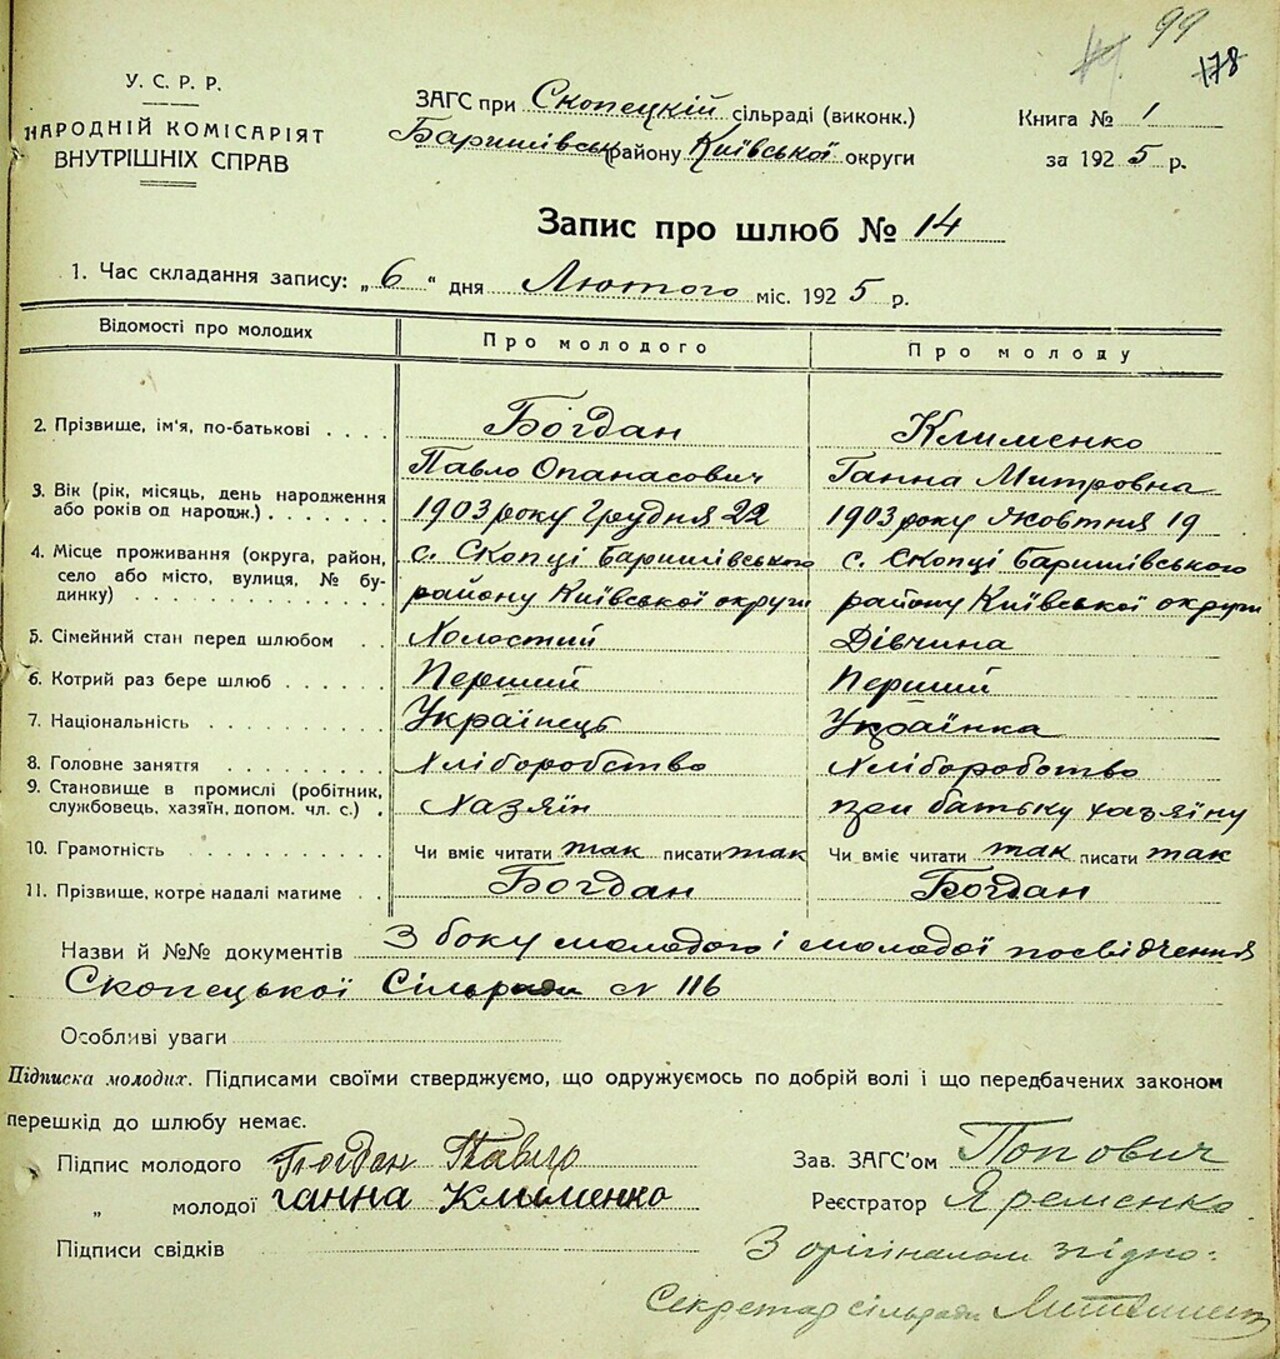 99
178
У. С. Р. Р.
НАРОДНІЙ КОМІСАРІЯТ
ВНУТРІШНІХ СПРАВ
ЗАГС при Скопецкій сільраді (виконк.)
Баришівськ району Київської округи
Книга № 1
за 1925 р.
Запис про шлюб № 14
1. Час складання запису: „6“ дня Лютого міс. 1925 р.
Відомості про молодих
Про молодого
Про молоду
2. Прізвище, ім'я, по-батькові . . . .
Богдан
Клименко
Павло Опанасович
Ганна Митровна
3. Вік (рік, місяць, день народження
або років од народж.) . . . . . . .
1903 року Грудня 22
1903 року Жовтня 19
4. Місце проживання (округа, район,
село або місто, вулиця, № бу-
динку) . . . . . . . . . . . . .
с. Скопці Баришівського
району Київської округи
с. Скопці Баришівського
району Київської округи
5. Сімейний стан перед шлюбом . .
Холостий
Дівчина
6. Котрий раз бере шлюб . . . . . .
Перший
Перший
7. Національність . . . . . . . . .
Українець
Українка
8. Головне заняття . . . . . . . .
Хліборобство
Хліборобство
9. Становище в промислі (робітник,
службовець, хазяїн, допом. чл. с.) .
Хазяїн
при батьку хазяїну
10. Грамотність . . . . . . . . . .
Чи вміє читати так писати так
Чи вміє читати так писати так
11. Прізвище, котре надалі матиме . .
Богдан
Богдан
Назви й №№ документів З боку молодого і молодої посвідчення
Скопецької Сільради N 116
Особливі уваги
Підписка молодих. Підписами своїми стверджуємо, що одружуємось по добрій волі і що передбачених законом
перешкід до шлюбу немає.
Підпис молодого Богдан Павло
Зав. ЗАГС'ом Попович
„ молодої Ганна Клименко
Реєстратор Яременко
Підписи свідків
З орігіналом згідно:
Секретар сільради